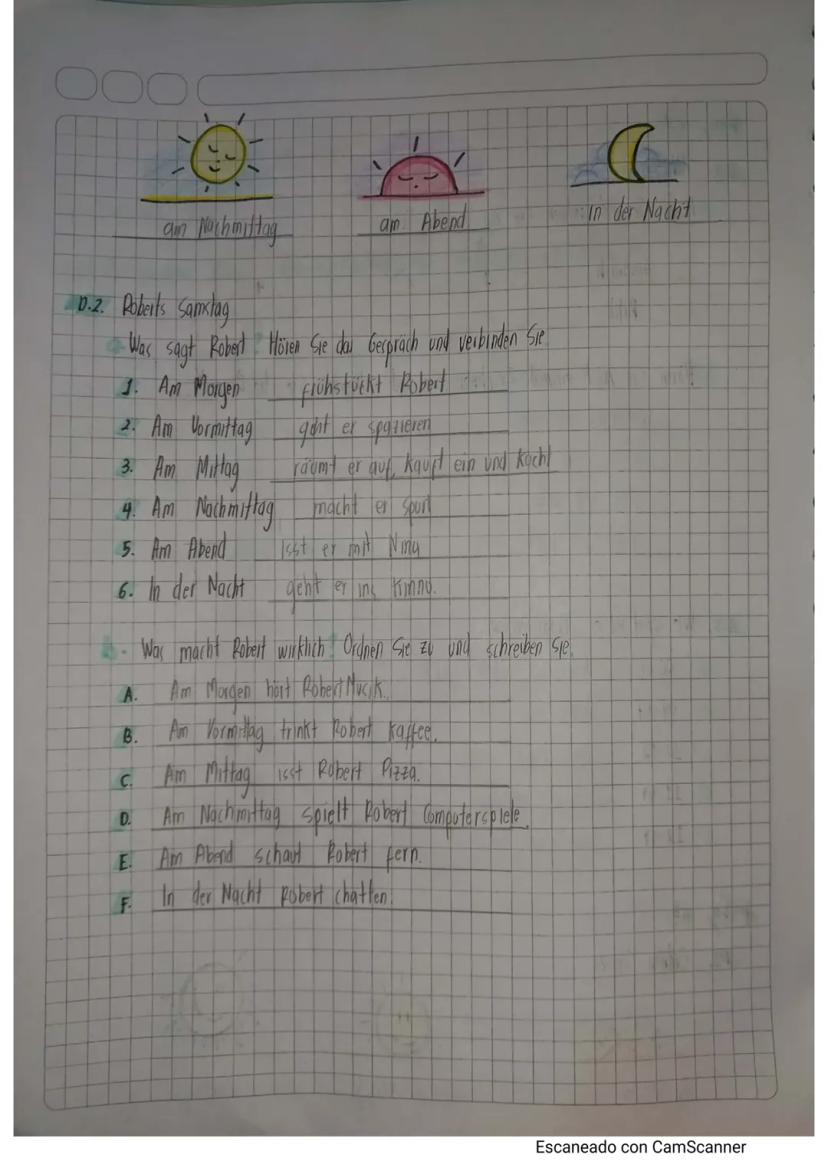 am Nachmittag
am Abend
in der Nacht
D.2. Roberts Samstag
Was sagt Robert? Hören Sie das Gespräch und verbinden Sie
1. Am Morgen frühstückt Robert
2. Am Vormittag geht er spazieren
3. Am Mittag räumt er auf, kauft ein und kocht
4. Am Nachmittag macht er Sport
5. Am Abend isst er mit Nina
6. In der Nacht geht er ins Kinno.
- Was macht Robert wirklich? Ordnen Sie zu und schreiben Sie.
A. Am Morgen hört Robert Musik.
B. Am Vormittag trinkt Robert Kaffee.
C. Am Mittag isst Robert Pizza.
D. Am Nachmittag spielt Robert Computerspiele.
E. Am Abend schaut Robert fern.
F. In der Nacht Robert chatten.
Escaneado con CamScanner